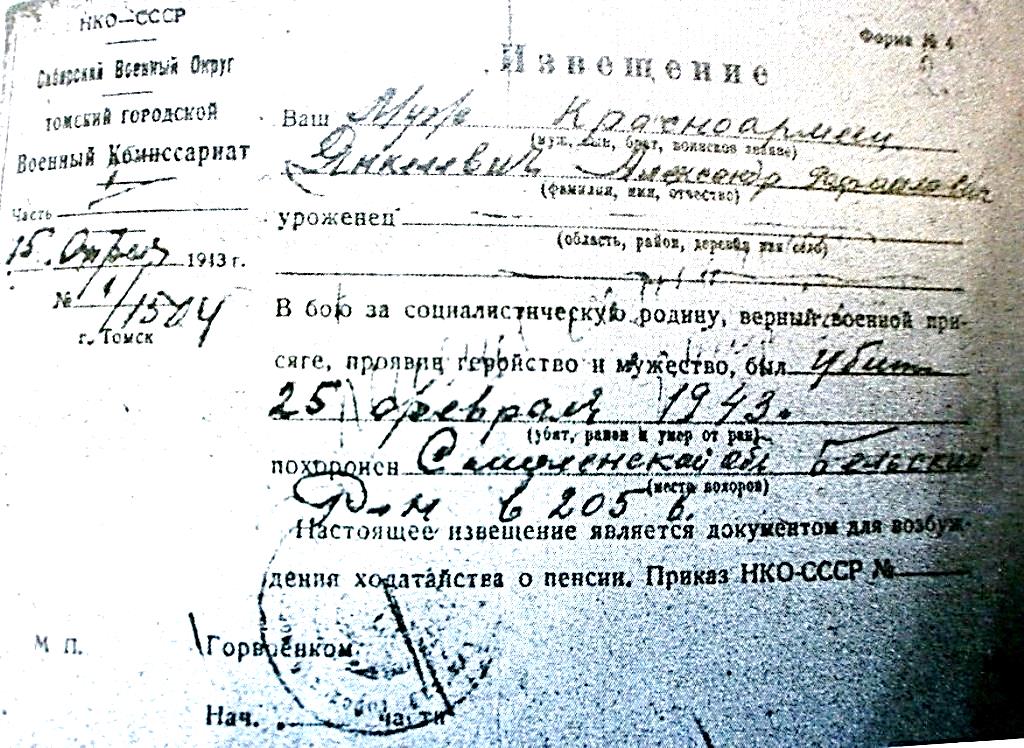 НКО–СССР
Сибирский Военный Округ
томский городской
Военный Комиссариат
Часть
15 Апреля 1943 г.
№ 1/1504
г. Томск
Форма № 4
Извещение
Ваш Муж Красноармеец
(муж, сын, брат, воинское звание)
Янкилевич Александр
(фамилия, имя, отчество)
уроженец
(область, район, деревня или село)
В бою за социалистическую родину, верный военной при-
сяге, проявив геройство и мужество, был убит
25 февраля 1943.
(убит, ранен и умер от ран)
похоронен Смоленской обл Бельский
(место похорон)
Р-н в 205 в.
Настоящее извещение является документом для возбуж-
дения ходатайства о пенсии. Приказ НКО-СССР №
М П.
Горвоенком
Нач. части